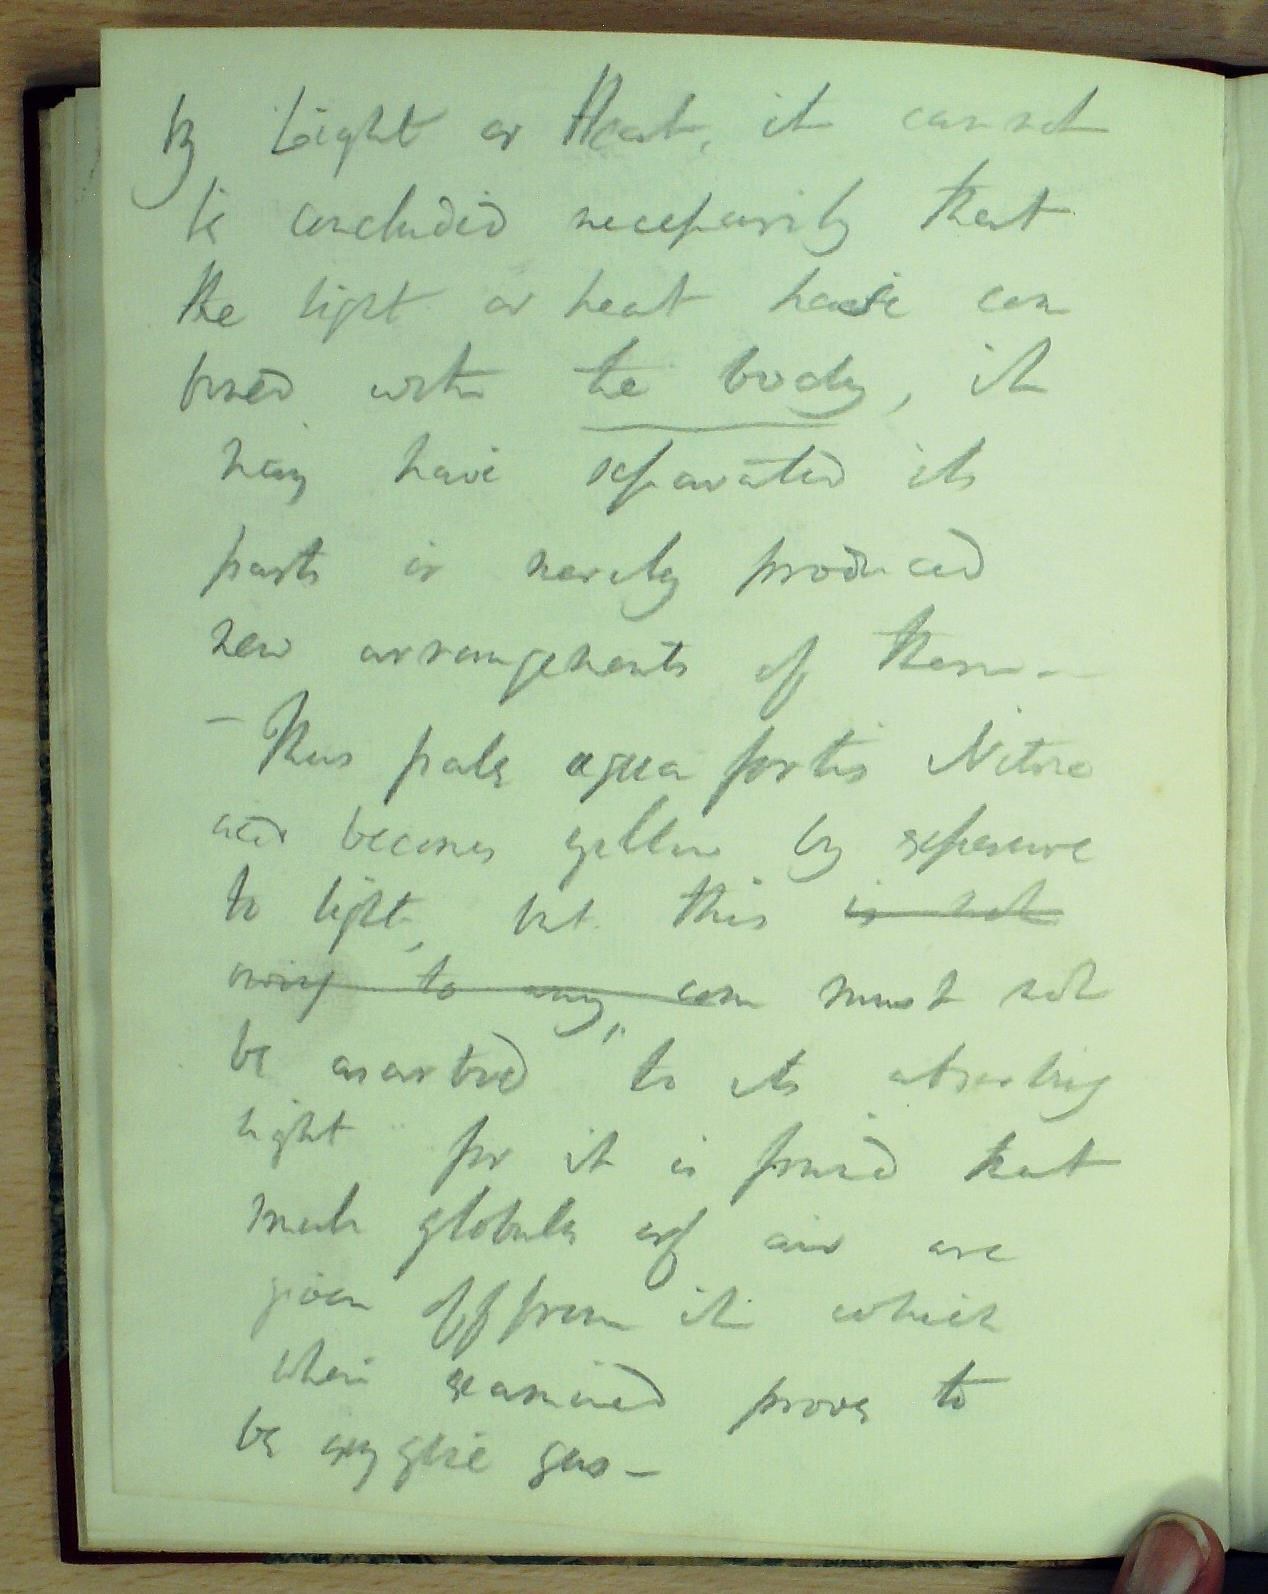 by Light or Heat, it cannot
be concluded necessarily that
the light or heat have com
bined with the body, it
may have separated its
parts or merely produced
new arrangements of them -
- Thus pale aqua fortis Nitric
acid becomes yellow by exposure
to light, but this is not
owing to any com must not
be to its absorbing
light for it is found that
globules of air are
given off from it which
when examined proves to
be gas -